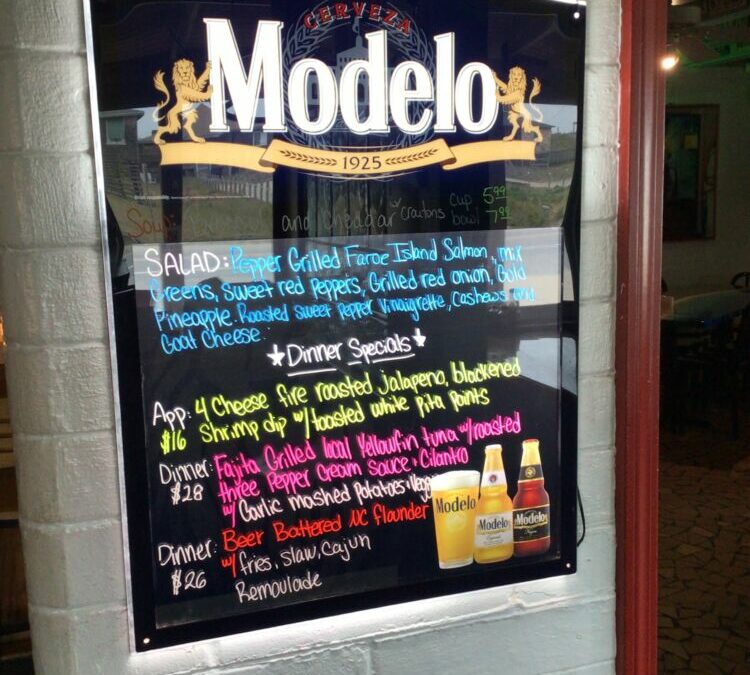 CERVEZA
Modelo
1925
Soup: and cheddar w/ croutons cup 5.99
bowl 7.99
SALAD: Pepper Grilled Faroe Island Salmon, mix
Greens, sweet red peppers, Grilled red onion, Gold
Pineapple. Roasted sweet pepper Vinaigrette, Cashews and
Goat Cheese.
Dinner Specials
App: 4 Cheese fire roasted jalapeno, blackened
$16 Shrimp dip w/ toasted white Pita points
Dinner: Fajita Grilled local Yellowfin tuna w/ roasted
$28 three pepper cream sauce + Cilantro
w/ Garlic mashed Potatoes + Vegg
Dinner: Beer Battered NC flounder
$26 w/ fries, slaw, Cajun
Remoulade
Modelo
Modelo
Modelo